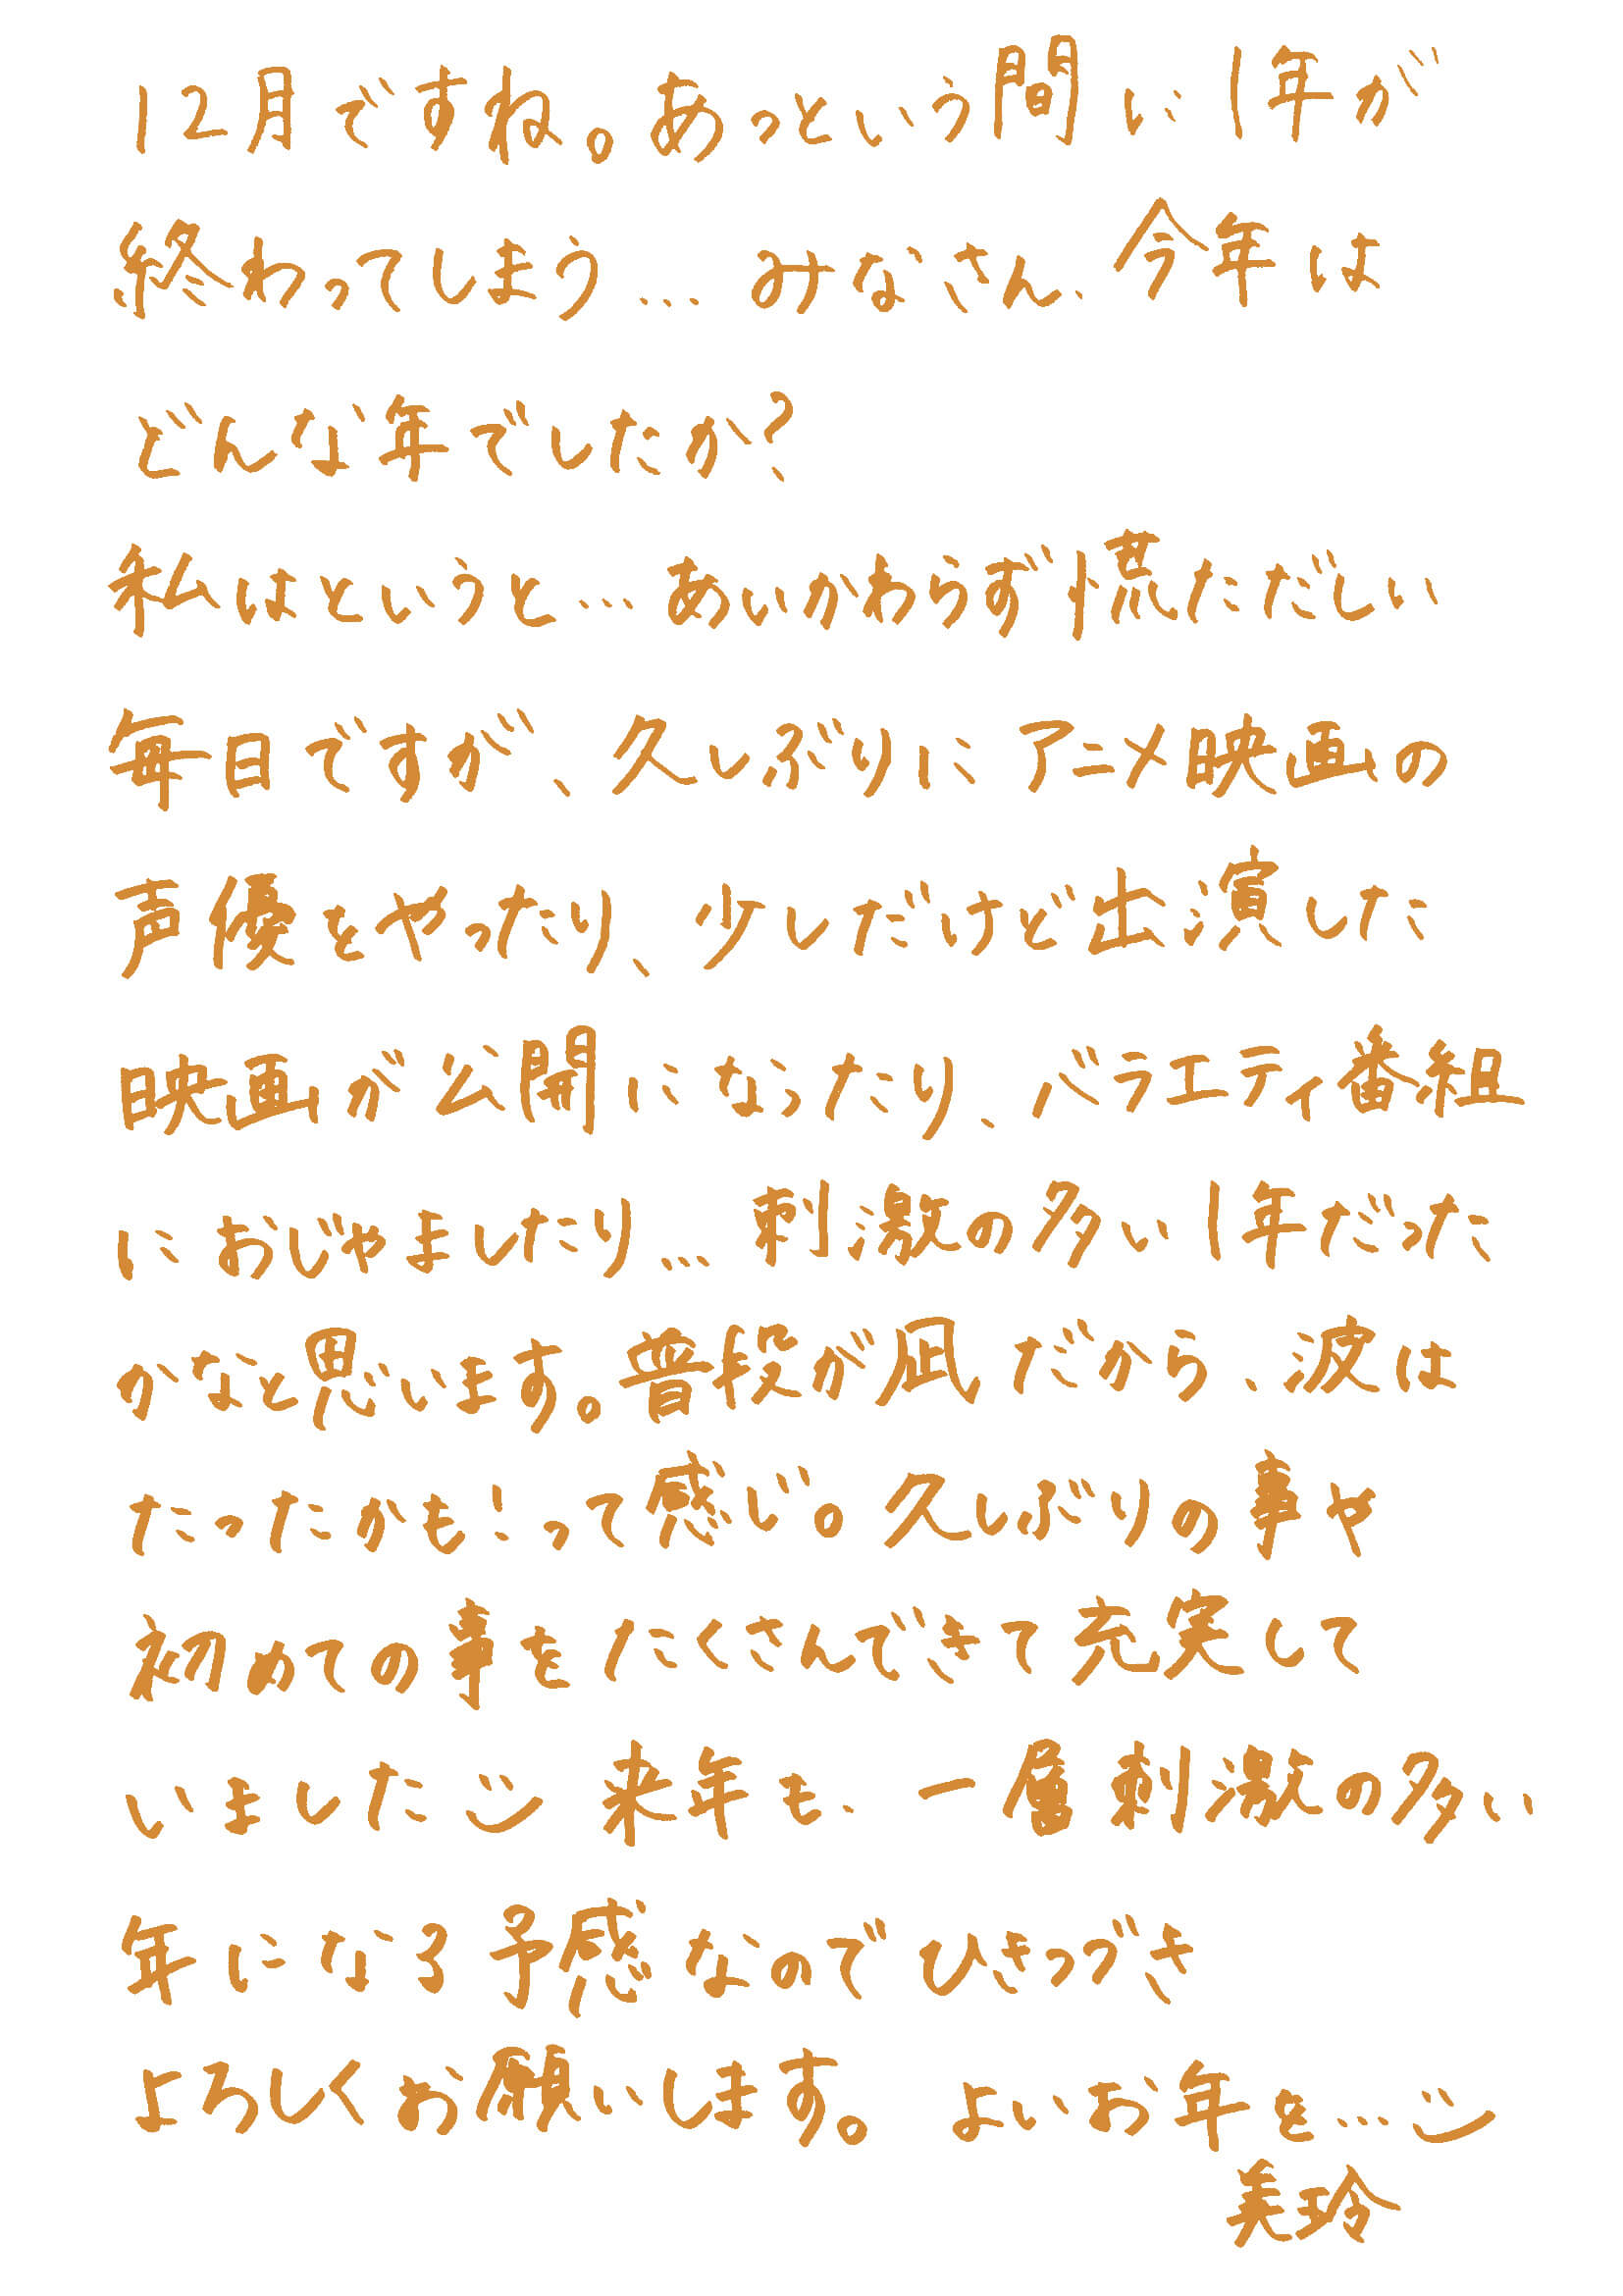 12月ですね。あっという間に1年が
終わってしまう… みなさん、今年は
どんな年でしたか?
私はというと… あいかわらず慌ただしい
毎日ですが、久しぶりにアニメ映画の
声優をやったり、少しだけど出演した
映画が公開になったり、バラエティ番組
におじゃましたり… 刺激の多い1年だった
かなと思います。普段が凪だから、波は
たったかも!って感じ。久しぶりの事や
初めての事をたくさんできて充実して
いました 来年も、一層刺激の多い
年になる予感なのでひきつづき
よろしくお願いします。 よいお年を…
美玲